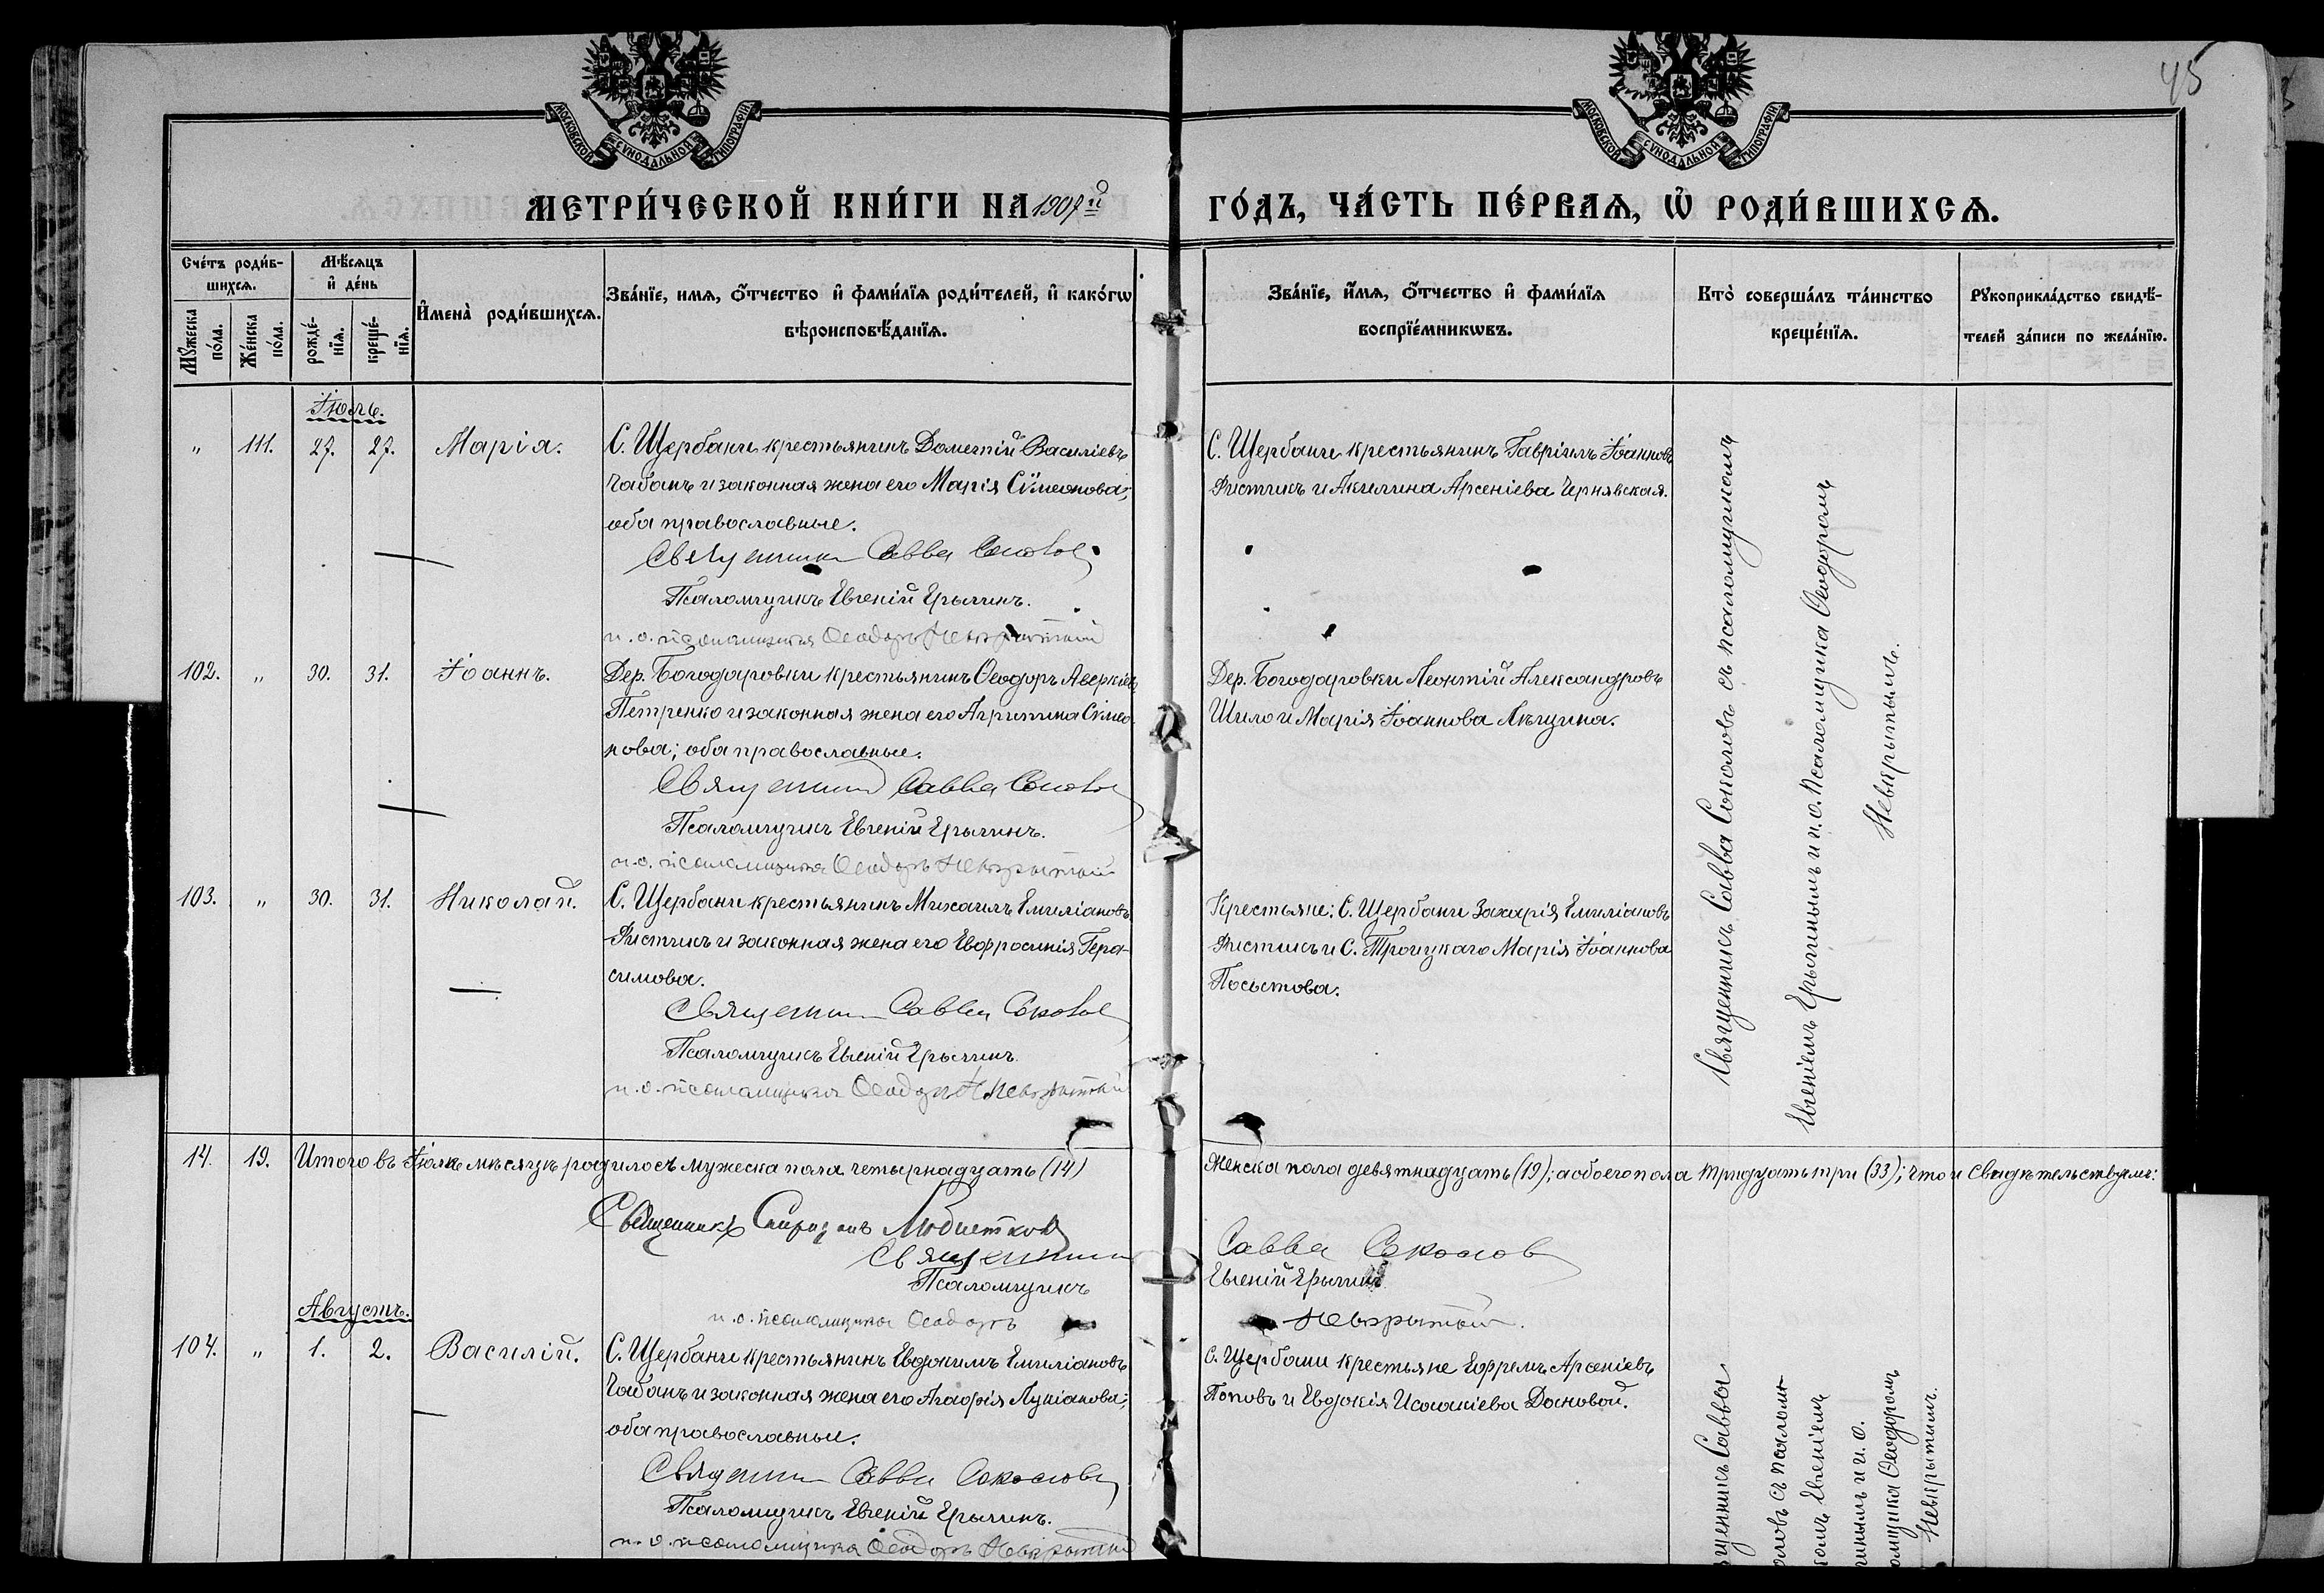 45
МОСКОВСКОЙ СѴНОДАЛЬНОЙ ТИПОГРАФІИ
МОСКОВСКОЙ СѴНОДАЛЬНОЙ ТИПОГРАФІИ
МЕТРИ́ЧЕСКОЙ КНИ́ГИ НА 1907й ГО́ДЪ, ЧА́СТЬ ПЕ́РВАѦ, Ѡ҆ РОДИ́ВШИХСѦ.
Сче́тъ роди́в-
шихсѧ.
Мꙋ́жеска по́ла.
Же́нска по́ла.
Мѣ́сѧцъ
и҆ де́нь
рожде́-
нїѧ.
креще́-
нїѧ.
И҆мена̀ роди́вшихсѧ.
Зва́нїе, имѧ, ѻ҆́тчество и҆ фами́лїѧ роди́телей, и҆ како́гѡ
вѣроисповѣ́данїѧ.
Зва́нїе, и҆́мѧ, ѻ҆́тчество и҆ фами́лїѧ
воспрїе́мникѡвъ.
Кто̀ соверша́лъ та́инство
креще́нїѧ.
Рꙋкоприкла́дство свидѣ́-
телей за́писи по жела́нїю.
Іюль.
" 111. 27. 27. Марія.
С. Щербани крестьянинъ Дометій Василіевъ
Чабанъ и законная жена его Марія Сѵмеонова;
оба православные.
Священникъ Савва Соколов
Псаломщикъ Евгеній Ерыгинъ.
и. о. псаломщика Ѳеодоръ Невкрытый
С. Щербани крестьянинъ Гавріилъ Іоанновъ
Фистикъ и Акилина Арсеніева Чернявская.
102. " 30. 31. Іоаннъ.
Дер. Богодаровки крестьянинъ Ѳеодоръ Аверкіевъ
Петренко и законная жена его Агрипина Сѵмео-
нова; оба православные.
Священникъ Савва Соколов
Псаломщикъ Евгеній Ерыгинъ.
и. о. псаломщика Ѳеодоръ Невкрытый
Дер. Богодаровки Леонтій Александровъ
Шило и Марія Іоаннова
103. " 30. 31. Николай.
С. Щербани крестьянинъ Михаилъ Емиліановъ
Фистикъ и законная жена его Евфросинія Гера-
симова.
Священникъ Савва Соколов
Псаломщикъ Евгеній Ерыгинъ.
и. о. псаломщика Ѳеодоръ Невкрытый
Крестьяне: С. Щербани Захарія Емиліановъ
Фистикъ и С. Троицкаго Марія Іоаннова
Посытова.
Священникъ Савва Соколовъ съ псаломщикомъ
Евгеніемъ Ерыгинымъ и и. о. псаломщика Ѳеодоромъ
Невкрытымъ.
14. 19. Итого въ Іюлѣ мѣсяцѣ родилось мужеска пола четырнадцать (14)
женска пола девятнадцать (19); а обоего пола тридцать три (33); что и свидѣтельствуемъ:
Священникъ Спиридонъ
Священникъ Савва Соколов
Псаломщикъ Евгеній Ерыгинъ
и. о. псаломщика Ѳеодоръ Невкрытый.
Августъ.
104. " 1. 2. Василій.
С. Щербани крестьянинъ Евдокимъ Емиліановъ
Чабанъ и законная жена его Агафія Лукіанова;
оба православные.
Священникъ Савва Соколовъ
Псаломщикъ Евгеній Ерыгинъ.
и. о. псаломщика Ѳеодоръ Невкрытый
С. Щербани крестьяне Ефремъ Арсеніевъ
Поповъ и Евдокія Исаакіева Дановой.
щенникъ Савва
оловъ съ псалом-
комъ Евгеніемъ
гинымъ и и. о.
омщика Ѳеодоромъ
Невкрытымъ.